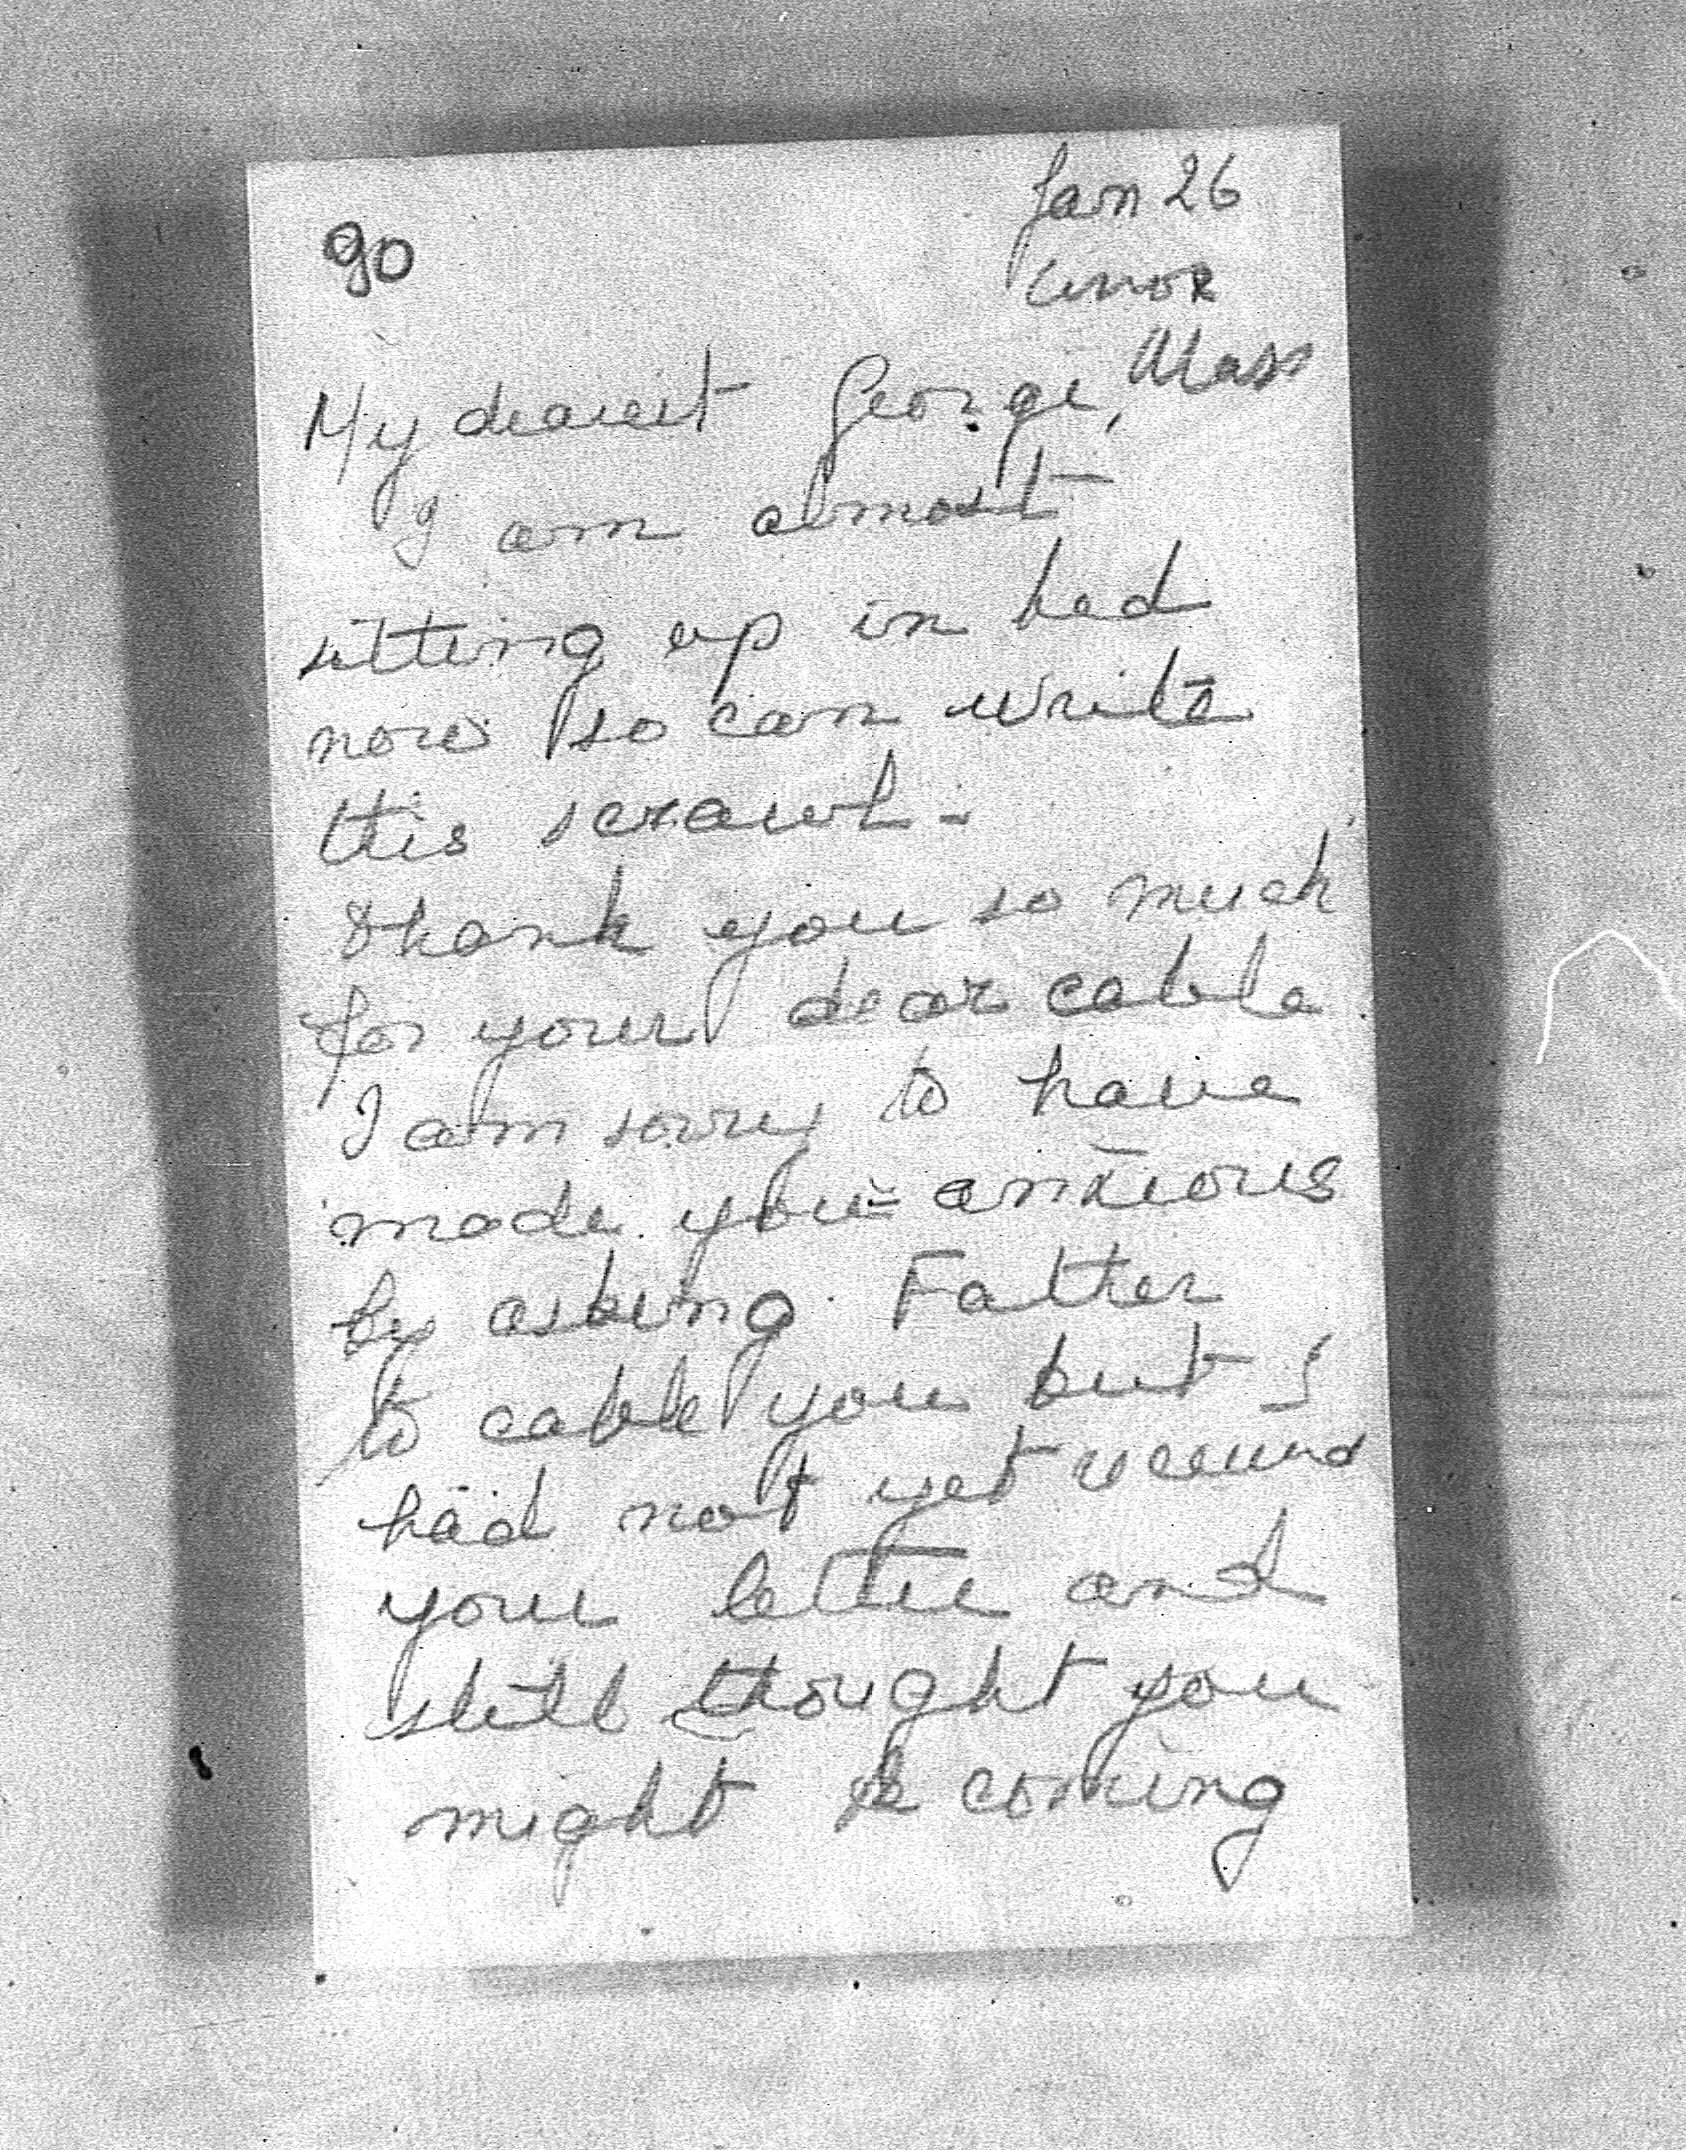 90
Jan 26
Lenox
Mass
My dearest George,
I am almost
sitting up in bed
now so can write
this scrawl -
Thank you so much
for your dear cable
I am sorry to have
made you anxious
by asking Father
to cable you but I
had not yet received
your letter and
still thought you
might be coming